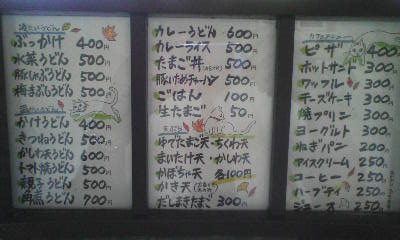 冷たいうどん
ぶっかけ 400円
水菜うどん 500円
豚しゃぶうどん 500円
梅おろしうどん 500円
かけうどん 400円
きつねうどん 500円
かしわ天うどん 600円
トマト焼うどん 500円
親子うどん 500円
角煮うどん 700円
カレーうどん 600円
カレーライス 500円
たまご丼 500円
豚いためチャーハン 500円
ごはん 100円
生たまご 50円
天ぷら
ゆでたまご天・ちくわ天
まいたけ天・かしわ天
かぼちゃ天 各100円
かき天
だしまきたまご 300円
カフェメニュー
ピザ 400
ホットサンド 300
ワッフル 300
チーズケーキ 300
焼プリン 300
ヨーグルト 300
ねぎパン 200
アイスクリーム 250
コーヒー 250
ハーブティ 250
ジュース 250